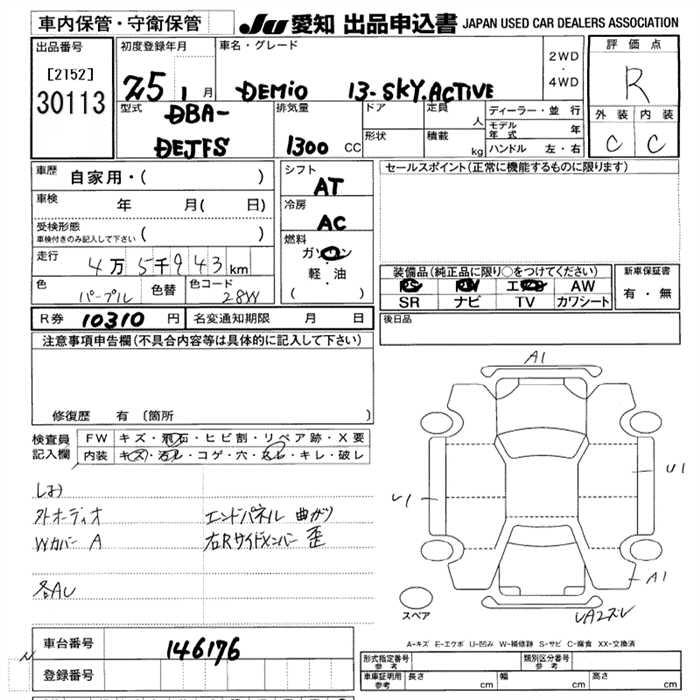 車内保管・守衛保管 JU 愛知 出品申込書 JAPAN USED CAR DEALERS ASSOCIATION
出品番号 [2152] 30113
初度登録年月 25 1 月
車名・グレード DEMIO 13-SKY.ACTIVE
2WD ・ 4WD
評価点 R
外装 内装
C C
型式 DBA-DEJFS
排気量 1300 CC
ドア 形状
定員 人
積載 kg
ディーラー・並行
モデル年式 年
ハンドル 左・右
車歴 自家用・( )
車検 年 月( 日)
受検形態 車検付きのみ記入して下さい ( )
走行 4万5千943km
色 パープル 色替 色コード 28W
シフト AT
冷房 AC
燃料 ガソリン 軽・油 ( )
セールスポイント(正常に機能するものに限ります)
装備品(純正品に限り○をつけてください)
PS PW エアB AW
SR ナビ TV カワシート
新車保証書 有・無
R券 10310 円 名変通知期限 月 日
後日品
注意事項申告欄(不具合内容等は具体的に記入して下さい)
修復歴 有〔箇所 〕
検査員記入欄
FW キズ・飛石・ヒビ割・リペア跡・X要
内装 キズ・汚レ・コゲ・穴・スレ・キレ・破レ
外オーディオ エンドパネル 曲がり
Wカバー A 右Rサイドメンバー 歪
各AU
A1
U1
U1
A1
UA2ズレ
スペア
A-キズ E-エクボ U-凹み W-補修跡 S-サビ C-腐食 XX-交換済
車台番号 146176
登録番号
形式指定番号 参考 類別区分番号 参考
車庫証明用 参考 長さ cm 幅 cm 高さ cm